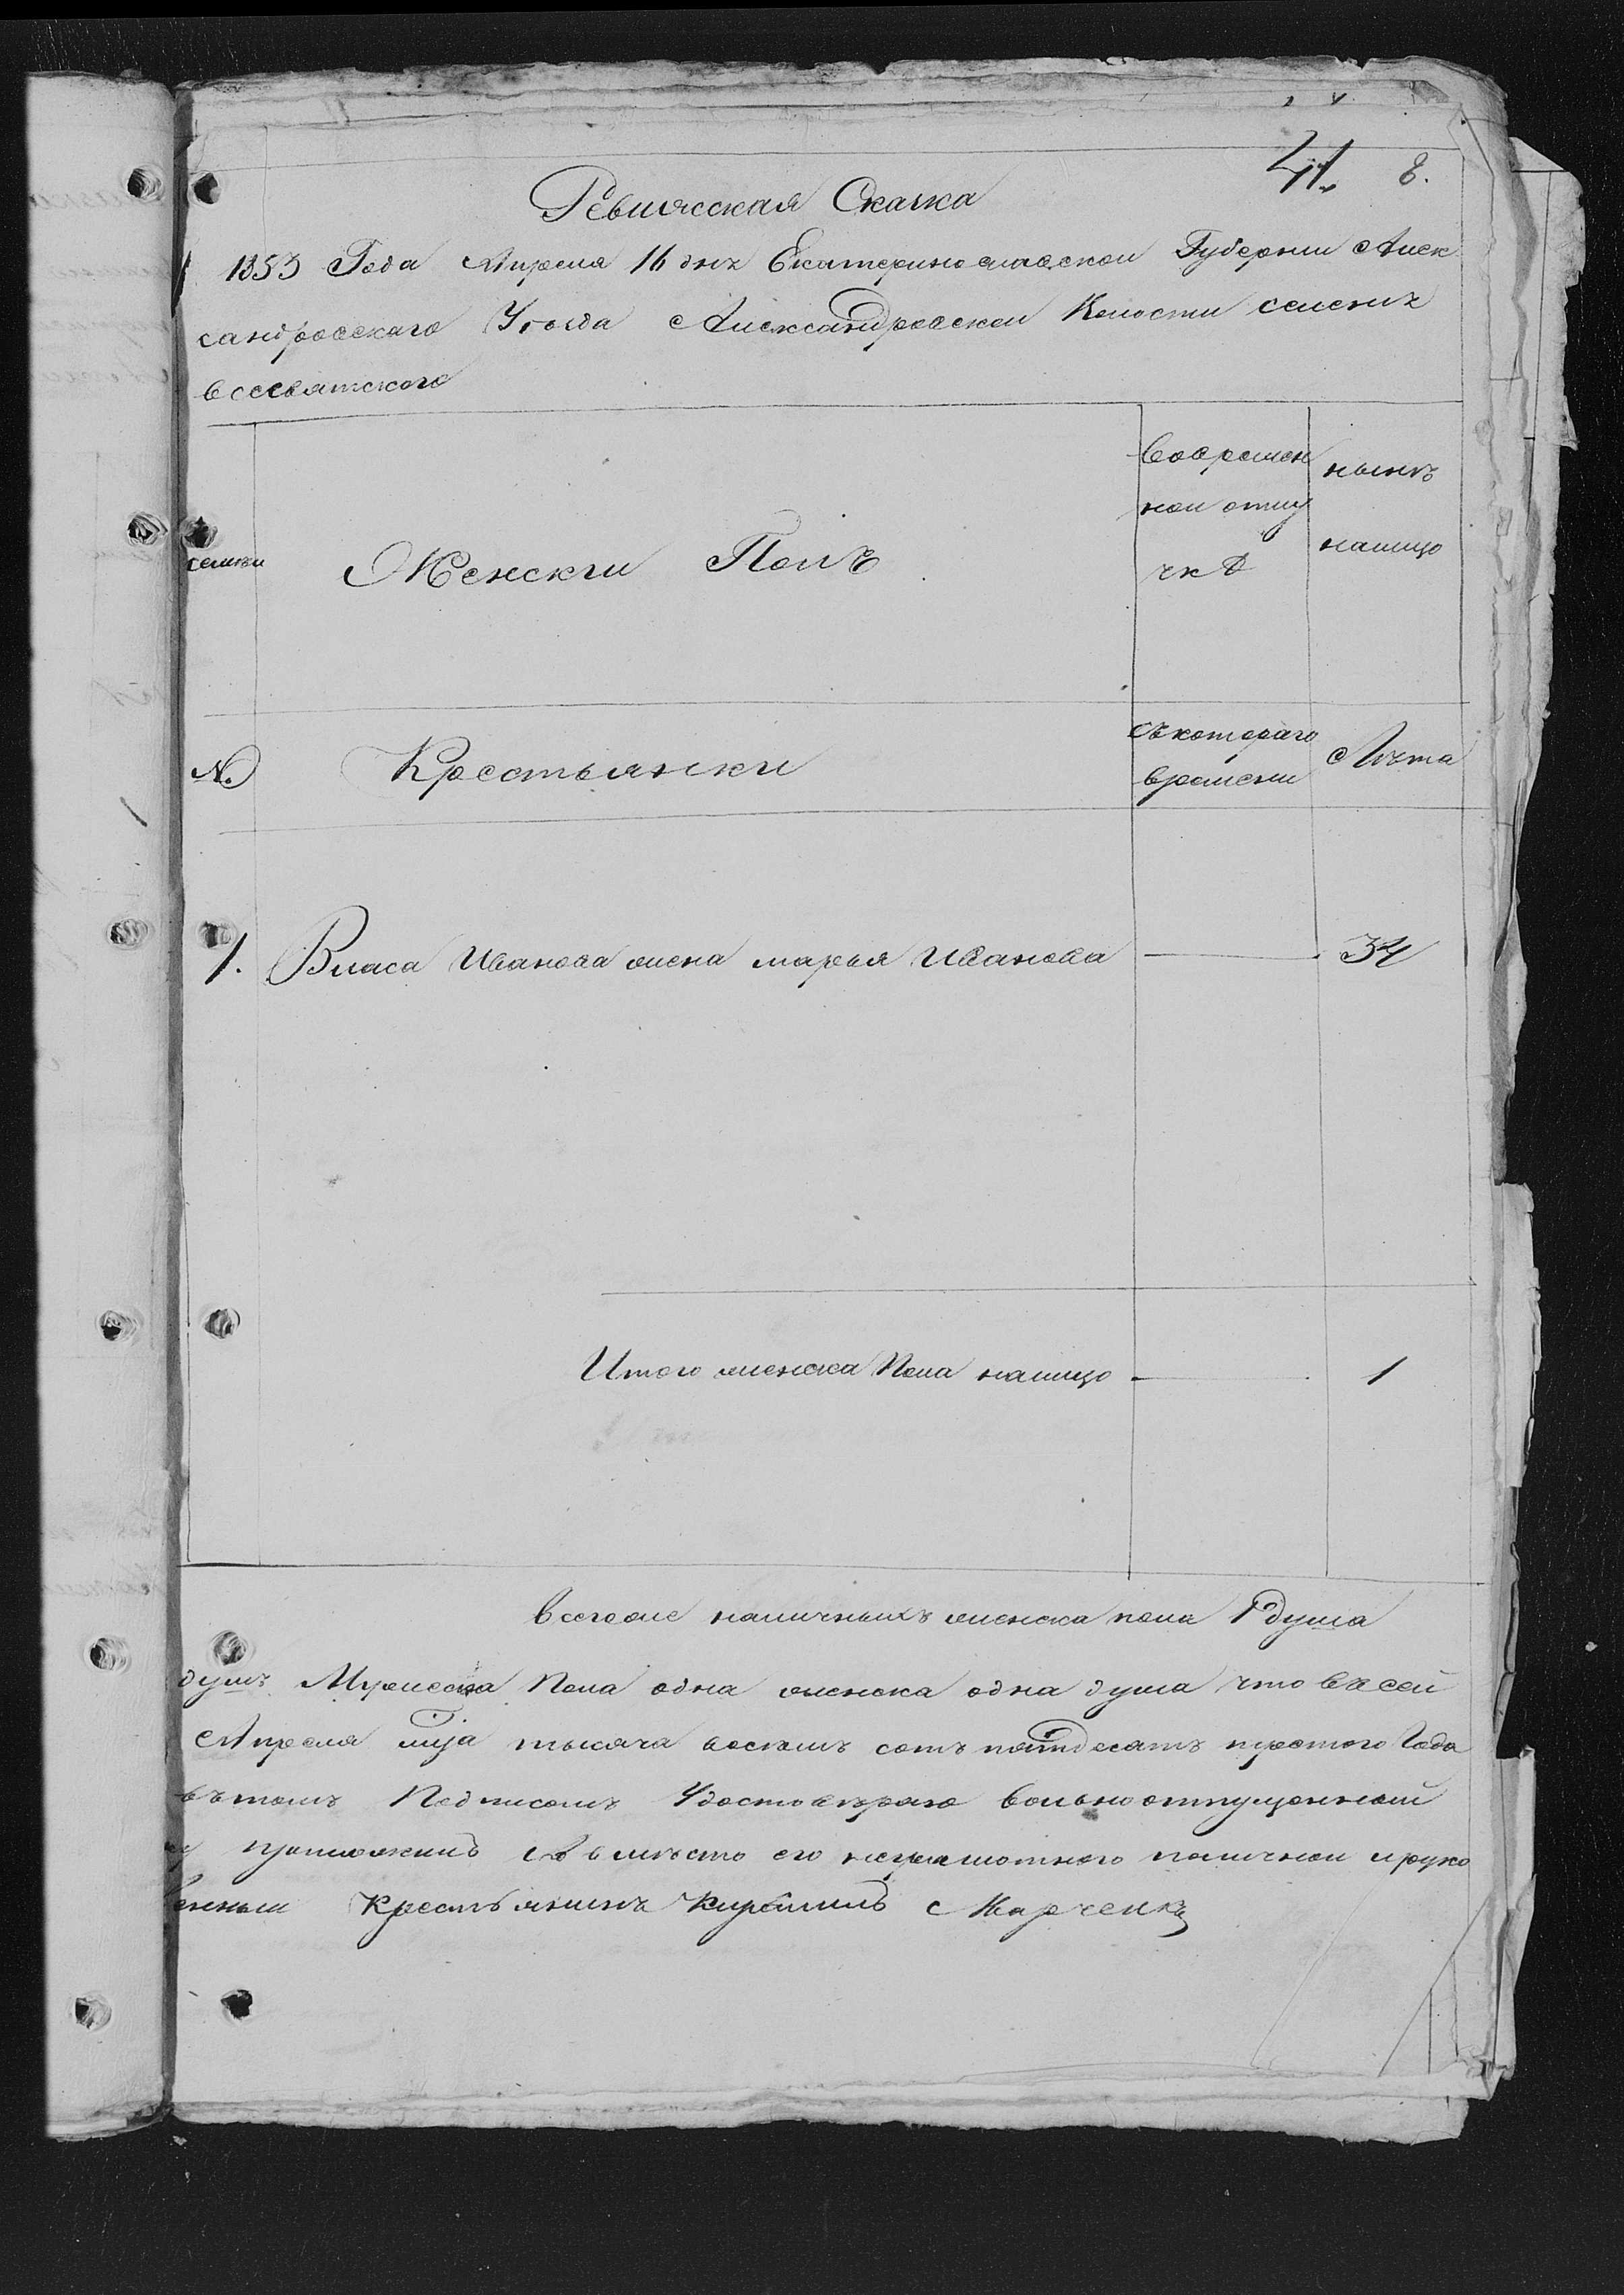 41. 8.
Ревижская Скаска
1853 Года Апреля 16 дня Екатеринославской Губернии Алек
сандровскаго Уезда Александровской Волости селения
всесвятского
семьи
Женскги Полъ
Вовремен
ной отлу
чкѣ
нынѣ
налицо
№
Крестьянки
съкотораго
времени
Лѣта
1. Власа Иванова жена марья Иванова — 34
Итого женска Пола налицо — 1
всегоже наличныхъ женска пола 1 душа
душъ Мужеска Пола одна женска одна душа что въ сей
Апреля тысяча восемъ сотъ пятдесятъ Года
вътомъ Подписомъ Удостоверяю вольноотпущенный
вместо его неграмотного личной и руко
Крестьянинъ Кирилъ Марченко